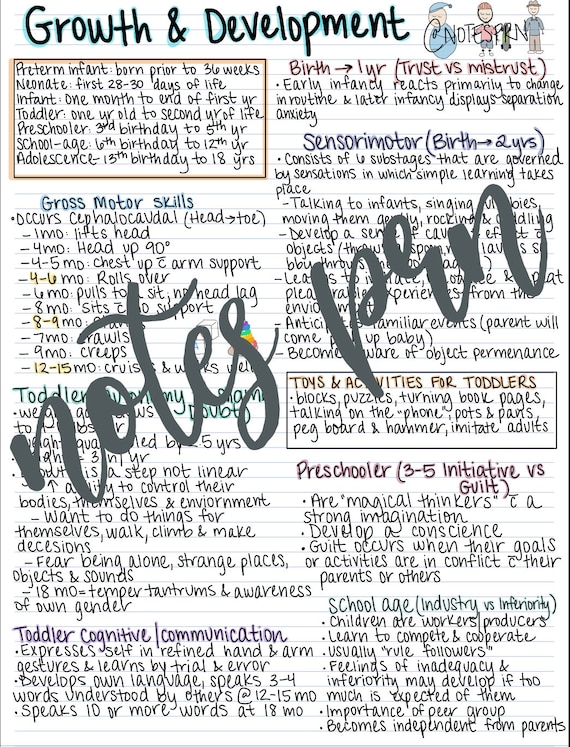 Growth & Development
@NOTESPRN
Preterm infant: born prior to 36 weeks
Neonate: first 28-30 days of life
Infant: one month to end of first yr
Toddler: one yr old to second yr of life
Preschooler: 3rd birthday to 5th yr
School-age: 6th birthday to 12th yr
Adolescence- 13th birthday to 18 yrs
Gross Motor Skills
• Occurs Cephalocaudal (Head→toe)
- 1mo: lifts head
- 4mo: Head up 90°
- 4-5 mo: chest up c̄ arm support
- 4-6 mo: Rolls over
- 6 mo: pulls to sit, no head lag
- 8 mo: sits support
- 8-9 mo:
- 7mo: crawls
- 9mo: creeps
- 12-15 mo: cruises & well
Toddler
Doubt)
5 yrs
is a step not linear
- ↑ ability to control their
bodies, themselves & enviornment
- want to do things for
themselves, walk, climb & make
decesions
- Fear being alone, strange places,
objects & sounds
- 18 mo= temper tantrums & awareness
of own gender
Toddler cognitive/communication
• Expresses self in refined hand & arm
gestures & learns by trial & error
• Develops own language, speaks 3-4
words understood by others @ 12-15 mo
• Speaks 10 or more words at 18 mo
Birth → 1yr (Trust vs mistrust)
• Early infancy reacts primarily to change
in routine & later infancy displays separation
anxiety
Sensorimotor (Birth→2yrs)
• Consists of 6 substages that are governed
by sensations in which simple learning takes
place
- Talking to infants, singing
moving them gently, rocking & cuddling
- Develop a sense of cause effect c̄
objects
- Learns to
pleasurable experiences from the
- Anticipates familiar events (parent will
come pick up baby)
- Become aware of object permenance
TOYS & ACTIVITIES FOR TODDLERS
• blocks, puzzles, turning book pages,
talking on the "phone", pots & pans,
peg board & hammer, imitate adults
Preschooler (3-5 Initiative vs
Guilt)
• Are "magical thinkers" c̄ a
strong imagination
• Develop a conscience
• Guilt occurs when their goals
or activities are in conflict c̄ their
parents or others
School age (Industry vs Inferiority)
• Children are workers/producers
• Learn to compete & cooperate
• usually "rule followers"
• Feelings of inadequacy &
inferiority may develop if too
much is expected of them
• Importance of peer group
• Becomes independent from parents
notes prn